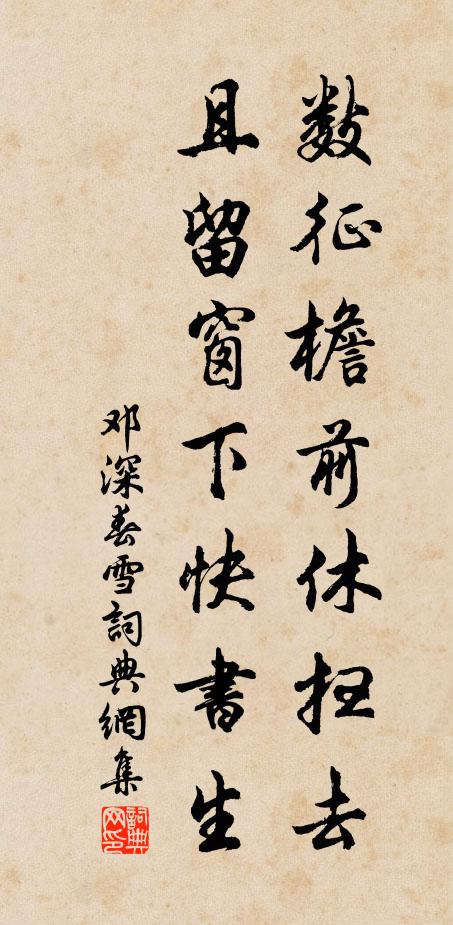 数征檐前休扫去
且留窗下快書生
邓深春雪詞典網集
詞典网印